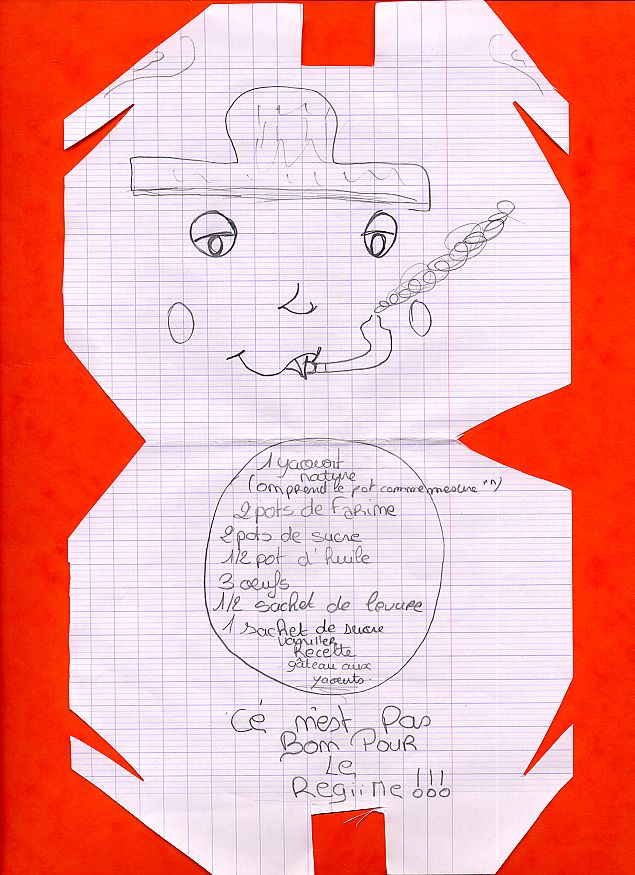 1 yaourt
nature
(omprend le pot comme mesure "")
2 pots de Farine
2 pots de sucre
1/2 pot d'huile
3 oeufs
1/2 sachet de levure
1 sachet de sucre
vaniller
Recette
gâteau aux
yaourts.
Cé n'est Pas
Bon Pour
Le
Regiime !!!